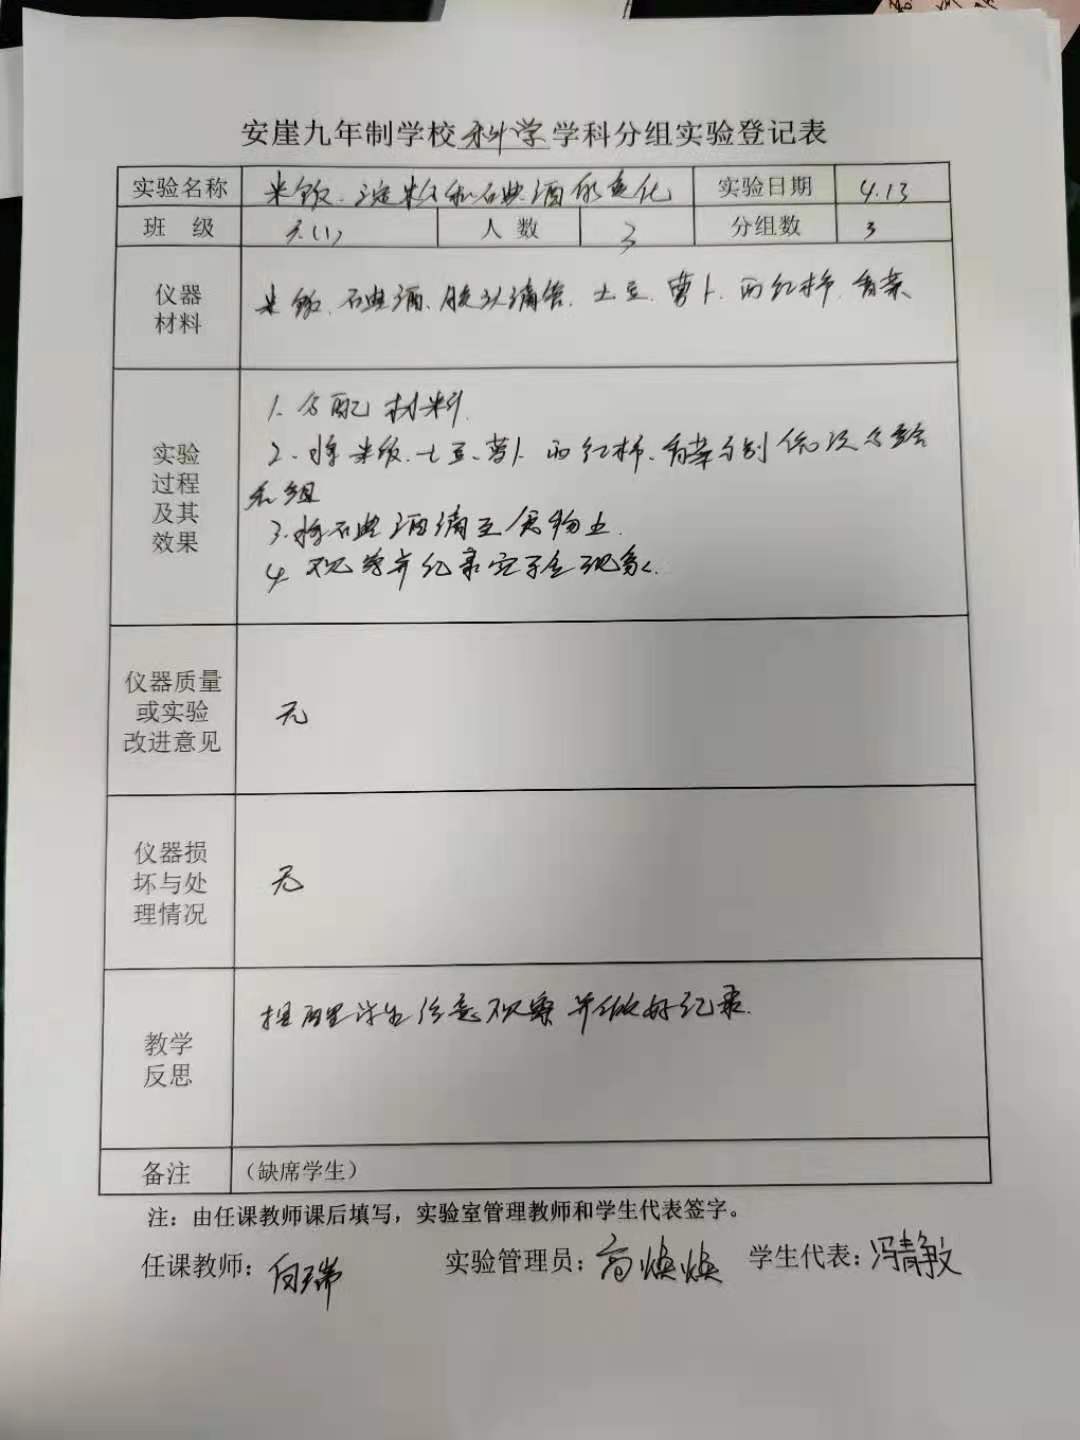 安崖九年制学校科学学科分组实验登记表
实验名称 米饭、淀粉和石典酒的变化 实验日期 4.13
班 级 (1) 人 数 3 分组数 3
仪器
材料
米饭、石典酒、胶头滴管、土豆、萝卜、西红柿、青菜
实验
过程
及其
效果
1、分配材料
2、将米饭、土豆、萝卜、西红柿、青菜分别依次分给
各组
3、将石典酒滴至食物上
4、观察并纪录实验现象
仪器质量
或实验
改进意见
无
仪器损
坏与处
理情况
无
教学
反思
提醒学生注意观察并做好纪录.
备注 （缺席学生）
注：由任课教师课后填写，实验室管理教师和学生代表签字。
任课教师：向瑞 实验管理员：高焕焕 学生代表：冯青敏